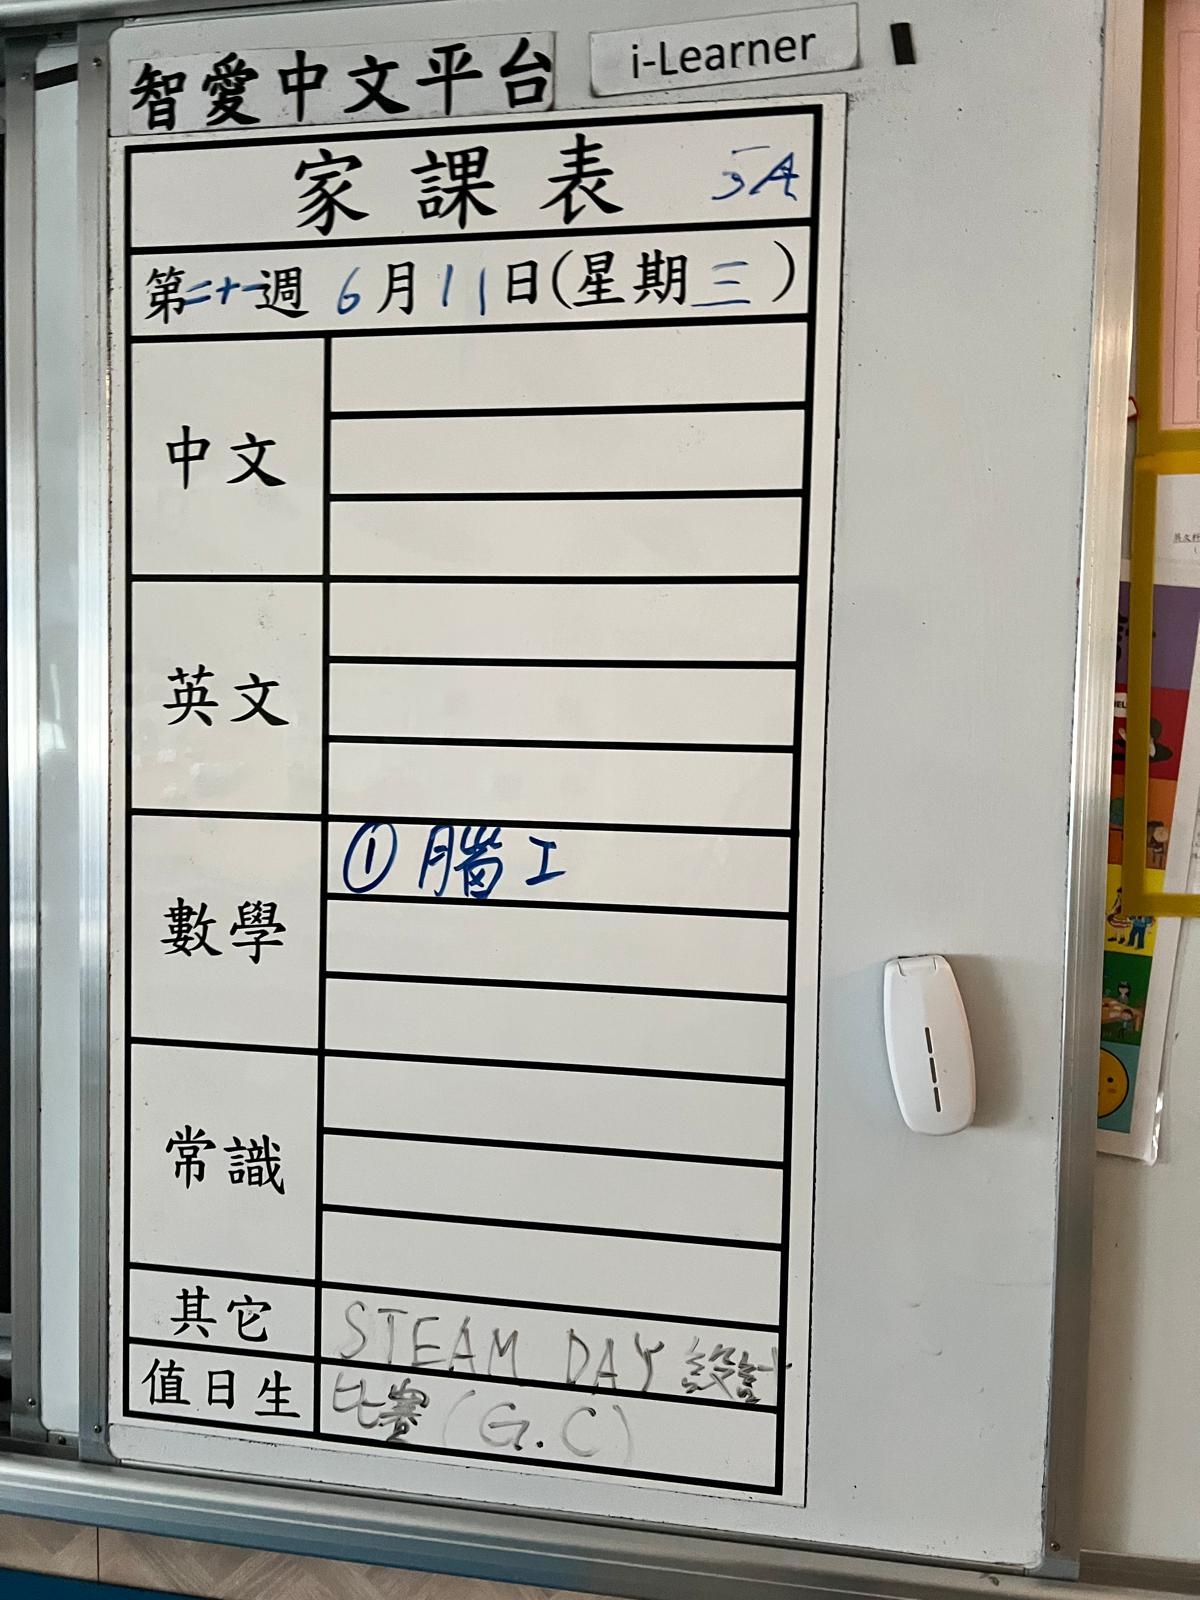 智愛中文平台 i-Learner
家課表 5A
第二十一週 6月11日(星期三)
中文
英文
數學 ① 腦工
常識
其它 STEAM DAY 設計
值日生 比賽(G.C)